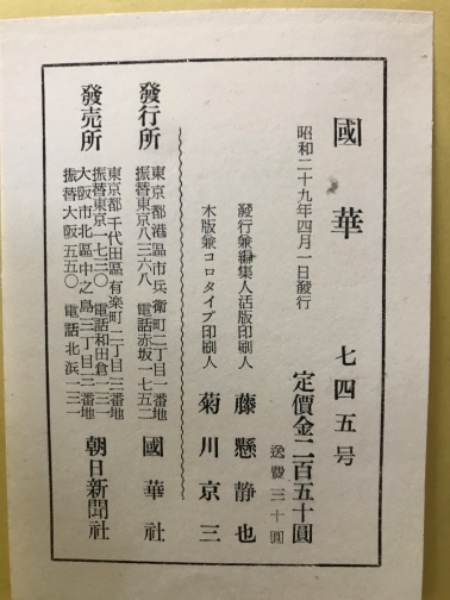 國華 七四五号
昭和二十九年四月一日發行
定價金二百五十圓
送費三十圓
發行兼編集人活版印刷人 藤懸静也
木版兼コロタイプ印刷人 菊川京三
發行所
東京都港區市兵衛町二丁目一番地
振替東京八三六八 電話赤坂一七五二
國華社
發売所
東京都千代田區有楽町二丁目三番地
振替東京一七三〇 電話和田倉一三一
大阪市北區中之島三丁目三番地
振替大阪五五〇 電話北浜一三一
朝日新聞社